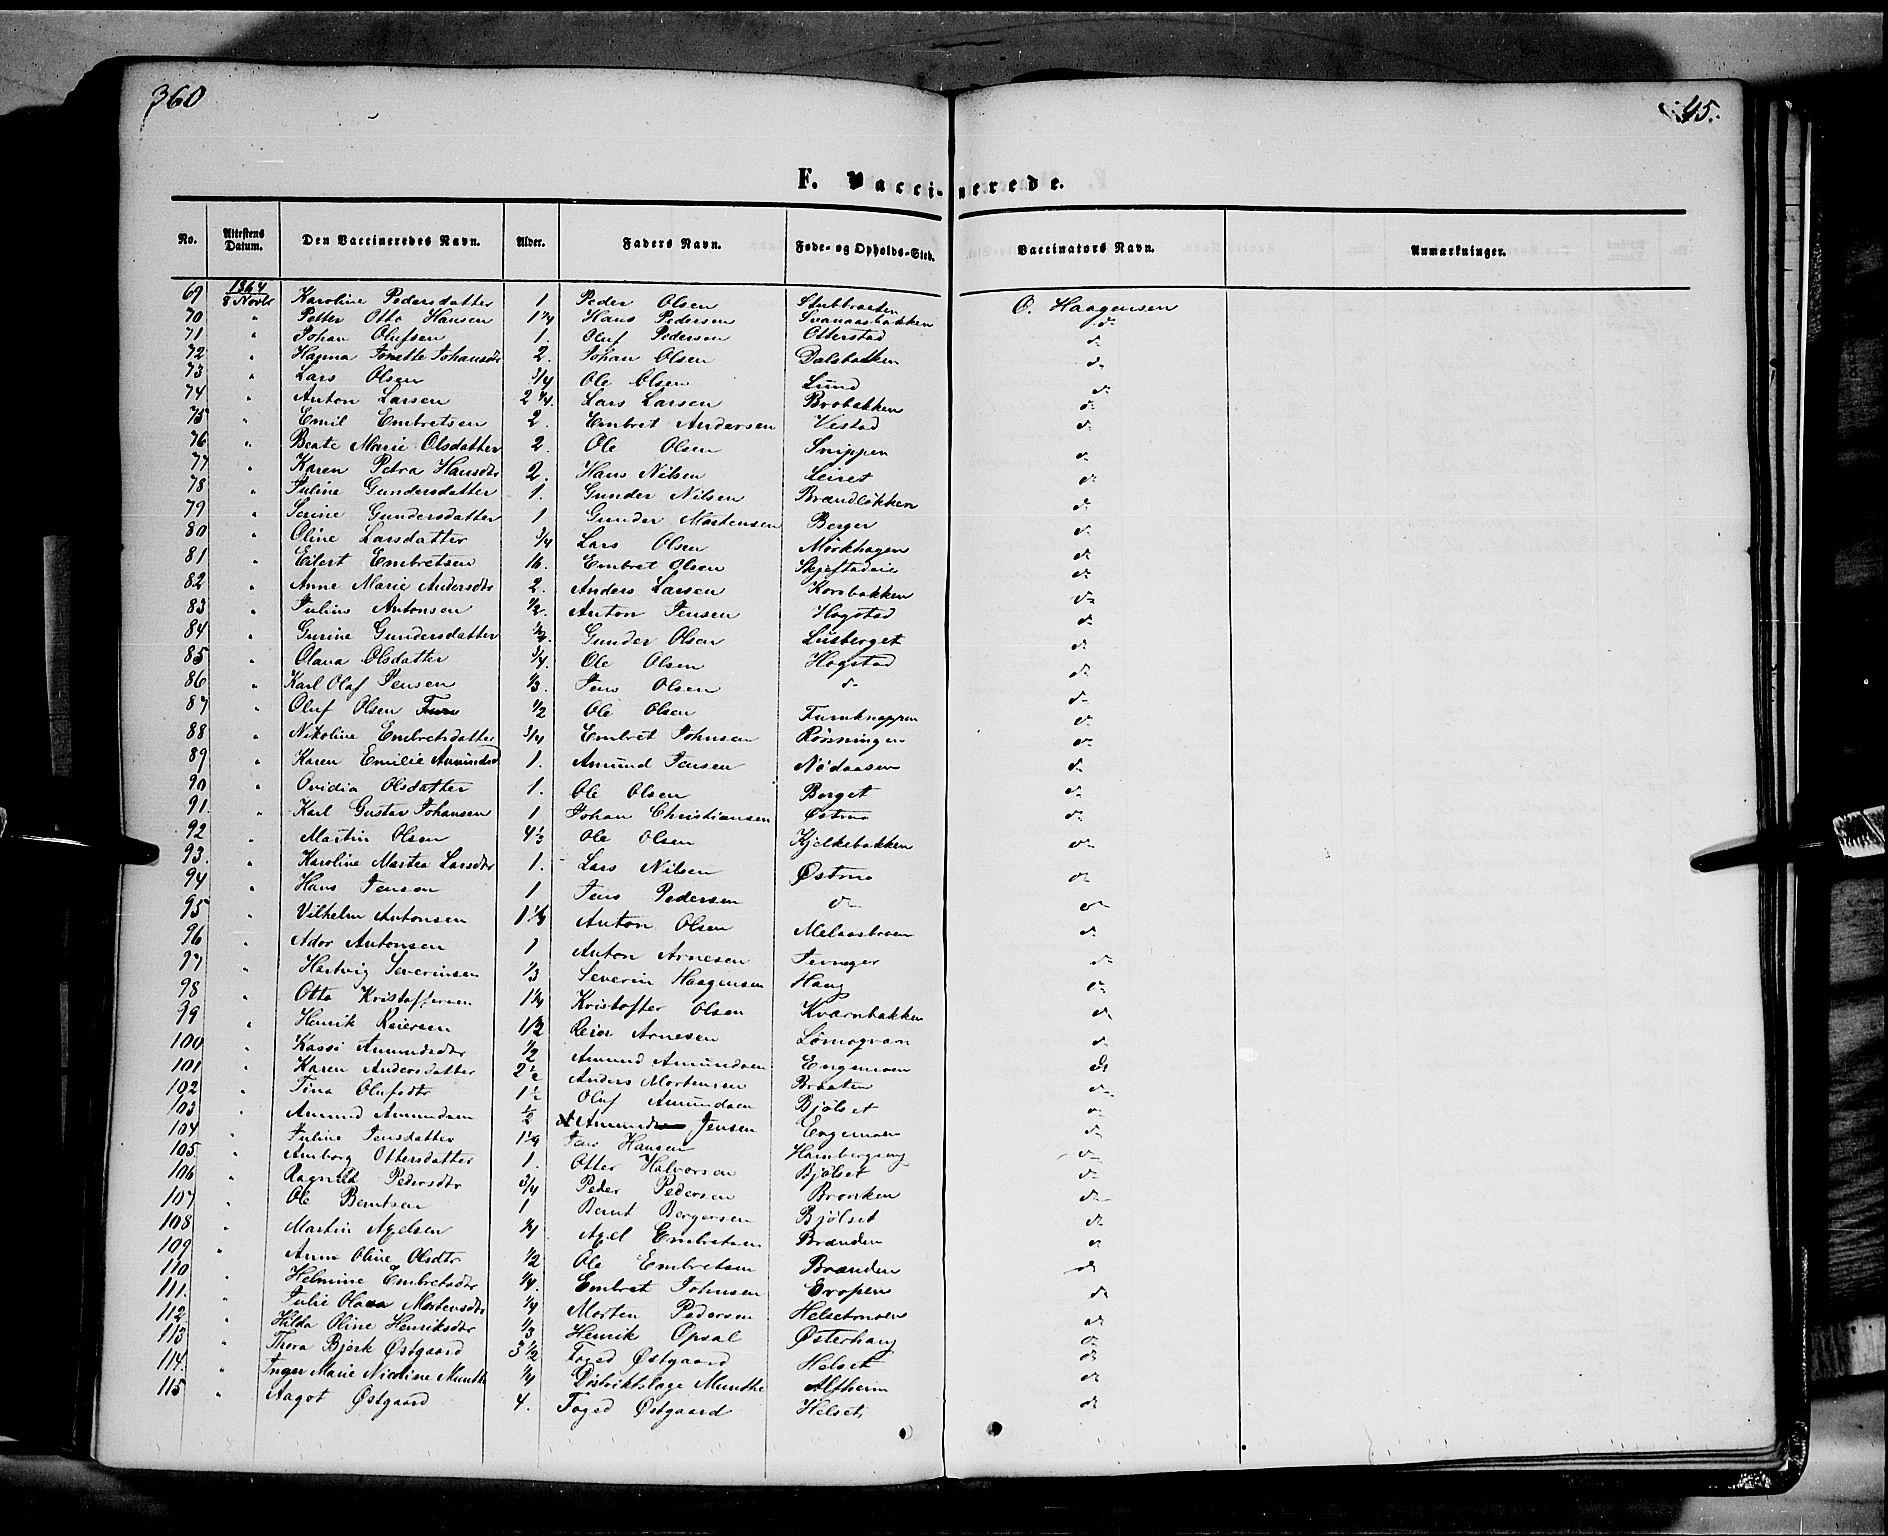 360
45.
F. Vaccinerede.
No. Attestens Datum. Den Vaccineredes Navn. Alder. Faders Navn. Føde- og Opholds-Sted. Vaccinators Navn. Anmærkninger.
1864
69 8 Novbr Karoline Pedersdatter 1. Peder Olsen Stubbraaten O. Haagensen
70 " Petter Otto Hansen 1 1/4 Hans Pedersen Svanaasbakken do
71 " Johan Olufsen 1. Oluf Pedersen Otterstad do
72 " Hanna Jonette Johansdtr 2. Johan Olsen Dalsbakken do
73 " Lars Olsen 3/4 Ole Olsen Lund do
74 " Anton Larsen 2 1/4. Lars Larsen Brobakken do
75 " Emil Embretsen 2. Embret Andersen Vestad do
76 " Beate Marie Olsdatter 2. Ole Olsen Snippen do
77 " Karen Petra Hansdtr 2. Hans Nilsen Leiret do
78 " Juline Gundersdatter 1. Gunder Nilsen Brændløkken do
79 " Serine Gundersdatter 1 Gunder Mortensen Berger do
80 " Oline Larsdatter 3/4 Lars Olsen Mørkhagen do
81 " Eilert Embretsen 16. Embret Olsen do
82 " Anne Marie Andersdtr 2. Anders Larsen Korsbakken do
83 " Julius Antonsen 1/2. Anton Jensen Hogstad do
84 " Gurine Gundersdatter 1/2. Gunder Olsen Lusberget do
85 " Olava Olsdatter 3/4. Ole Olsen Hogstad do
86 " Karl Olaf Jensen 1/3. Jens Olsen do do
87 " Oluf Olsen 1/2 Ole Olsen Furuknappen do
88 " Nikoline Embretsdatter 3/4 Embret Johnsen Rønningen do
89 " Karen Emilie Amundsd 1. Amund Jensen Nødaasen do
90 " Ovidia Olsdatter 1. Ole Olsen Berget do
91. " Karl Gustav Johansen 1 Johan Christiansen Østmo do
92 " Martin Olsen 4 1/3 Ole Olsen Kjelkebakken do
93. " Karoline Martea Larsdtr 1. Lars Nilsen Østmo do
94 " Hans Jensen 1 Jens Pedersen do do
95 " Vilhelm Antonsen Anton Olsen do
96 " Ador Antonsen 1 Anton Arnesen do
97 " Hartvig Severinsen 1/3 Severin Haagensen Haug do
98 " Otto Kristoffersen 1 1/4 Kristoffer Olsen Kværnbakken do
99 " Henrik Reiersen 1 1/2 Reier Arnesen do
100 " Kassi Amundsdtr 1/2 Amund Amundsen Engemoen do
101 " Karen Andersdatter 2 1/2 Anders Mortensen Braaten do
102 " Tina Olufsdtr 1 1/2 Oluf Amundsen Bjølset do
103 " Amund Amundsen 1/2 Amund Jensen Engemoen do
104 " Juline Jensdatter 1 1/4 Jens Hansen do
105 " Amborg Ottersdatter 1. Otter Halvorsen Bjølset do
106 " Ragnild Pedersdtr 3/4 Peder Pedersen Bronken do
107 " Ole Berntsen 1 Bernt Bergersen Bjølset do
108 " Martin Axelsen 3/4 Axel Embretsen Brænden do
109 " Anne Oline Olsdtr 1/2 Ole Embretsen Brænden do
110 " Helmine Embretsdtr 1/4. Embret Johnsen Gropen do
111. " Julie Olava Mortensdtr 1/4 Morten Pedersen Helsetmoen do
112 " Hilda Oline Henriksdtr 1/3 Henrik Opsal Østerhaug do
113 " Thora Bjerk Østgaard 3 1/2 Foged Østgaard Helset do
114. " Inger Marie Nicoline Munthe 1/4 Distriktslæge Munthe Alfheim do
115 " Aagot Østgaard 4. Foged Østgaard Helset do